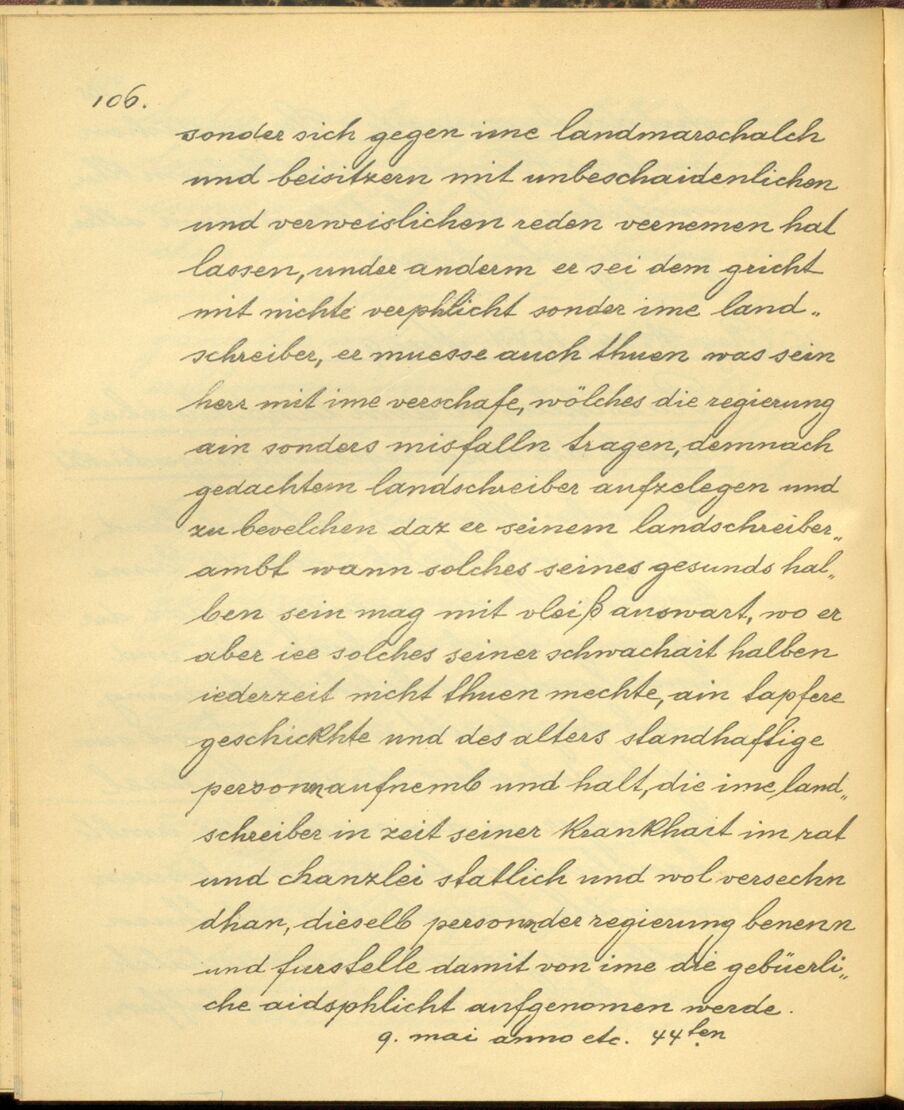 106.
sonder sich gegen ime landmarschalch
und beisitzern mit unbeschaidenlichen
und verweislichen reden vernemen hat
lassen, under anderm er sei dem gricht
mit nichte verphlicht sonder ime land„
schreiber, er muesse auch thuen was sein
herr mit ime verschafe, wölches die regierung
ain sonders misfalln tragen, demnach
gedachtem landschreiber aufzelegen und
zu bevelchen daz er seinem landschreiber„
ambt wann solches seines gesunds hal„
ben sein mag mit vleiß auswart, wo er
aber iee solches seiner schwachait halben
iederzeit nicht thuen mechte, ain tapfere
geschickhte und des alters standhaftige
person aufnemb und halt, die ime land„
schreiber in zeit seiner krankhait im rat
und chanzlei statlich und wol versechn
dhan, dieselb person der regierung benenn
und furstelle damit von ime die gebüerli„
che aidsphlicht aufgenomen werde.
9. mai anno etc. 44ten